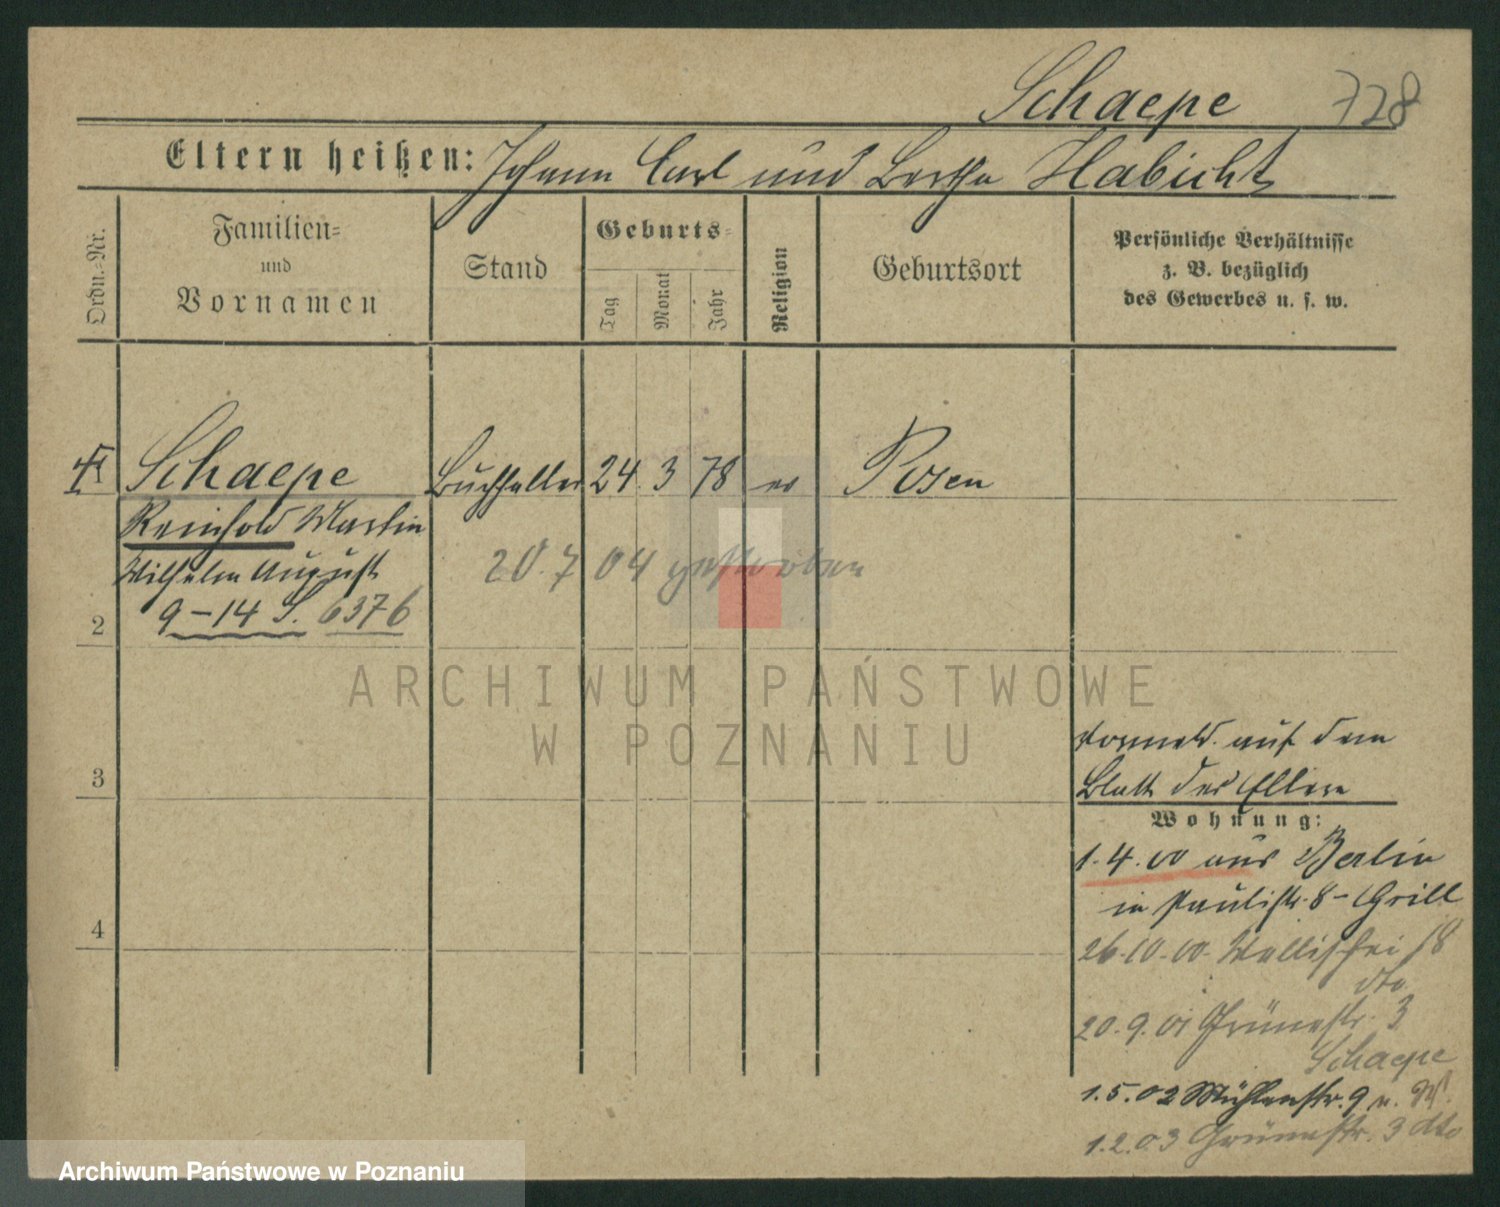 Schaepe 728
Eltern heißen: Johann Carl und Bertha Habicht
Ordn.-Nr.
Familien- und Vornamen
Stand
Geburts-
Tag
Monat
Jahr
Religion
Geburtsort
Persönliche Verhältnisse
z. B. bezüglich
des Gewerbes u. s. w.
Schaepe Buchhalter 24. 3 78 ev Posen
Reinhold Martin
Wilhelm August
20. 7 04 gestorben
9-14 S. 6376
2
3
4
ARCHIWUM PAŃSTWOWE
W POZNANIU
vermeld. auf dem
Blatt der Eltern
Wohnung:
1.4.00 aus Berlin
in Paulistr. 8 - Grill
26.10.00. Wallischei 18
dto
20.9.01 Grünestr. 3
Schaepe
1.5.02 Mühlenstr. 9
1.2.03 Grünestr. 3 dto
Archiwum Państwowe w Poznaniu